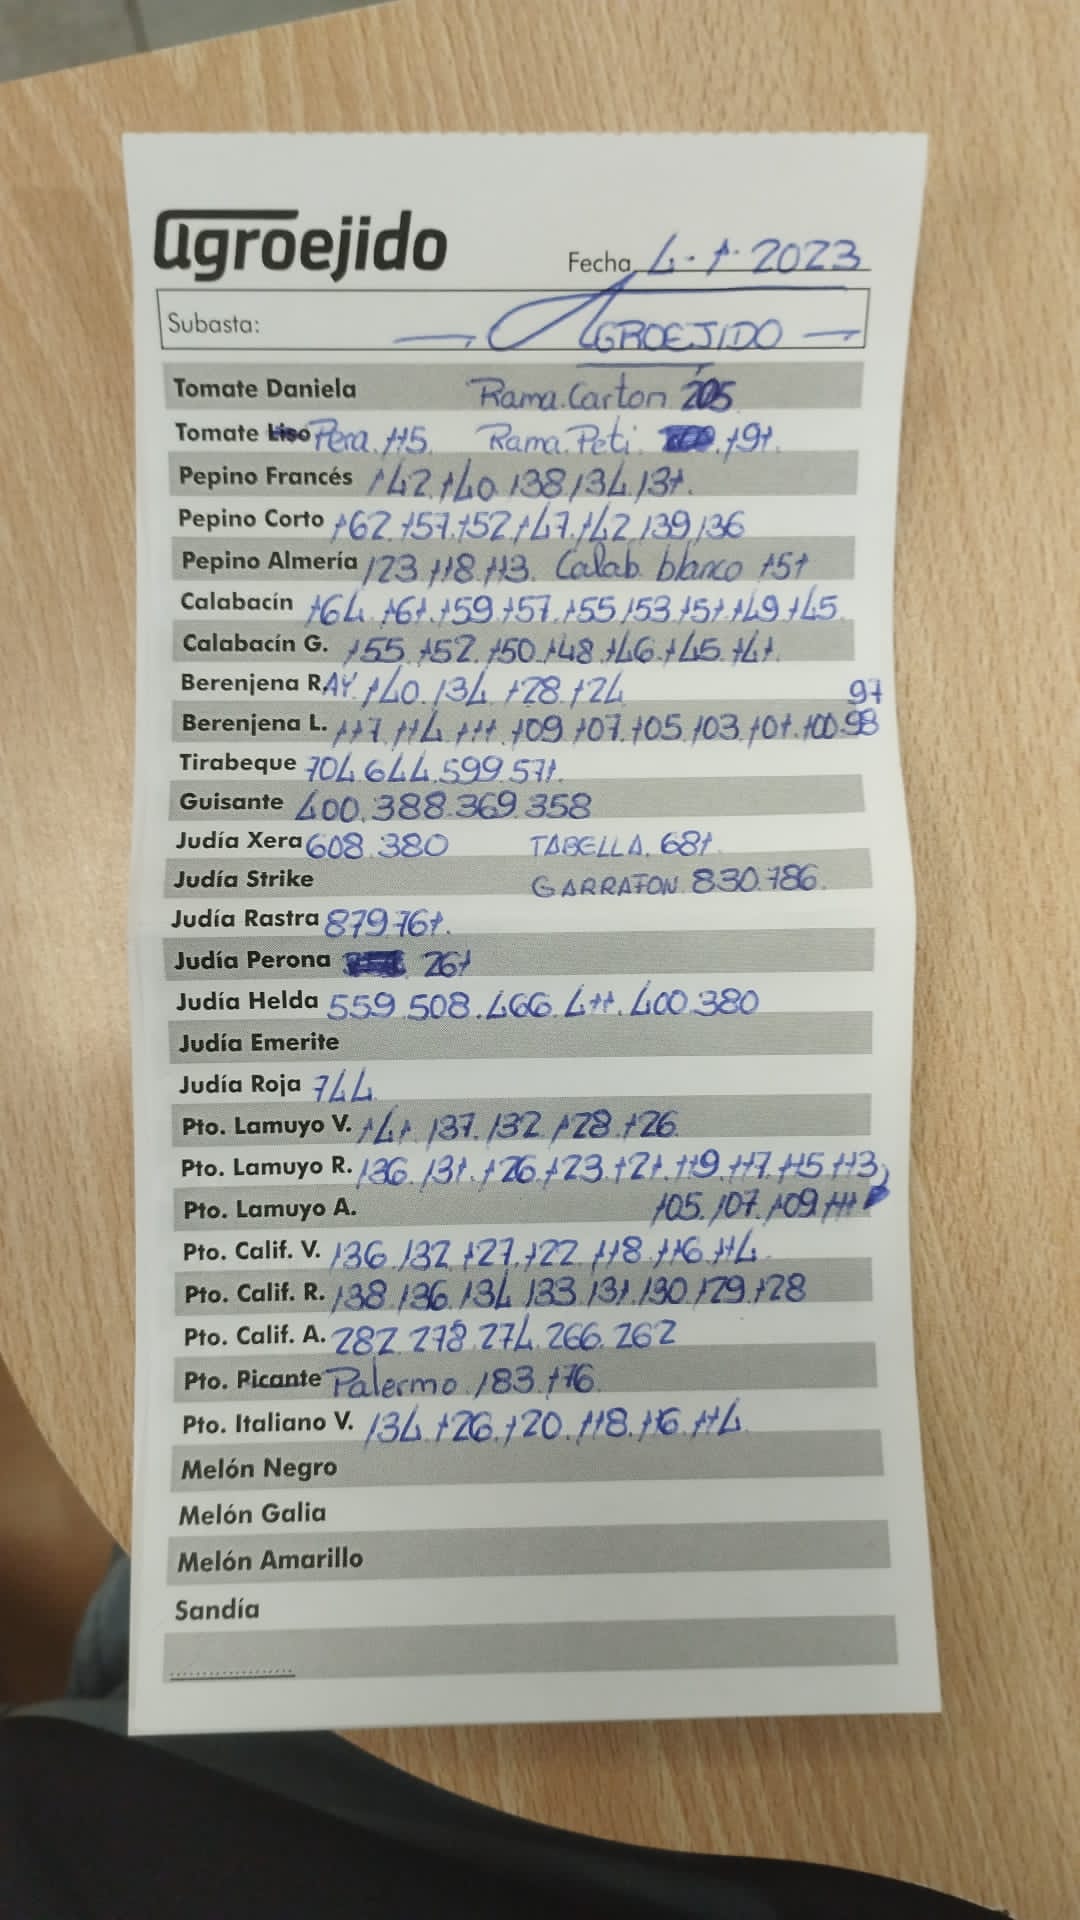 agroejido
Fecha 4-1-2023
Subasta: AGROEJIDO
Tomate Daniela Rama.Carton 205
Tomate Liso Pera.115. Rama.Peti. .191.
Pepino Francés 142.140.138.134.131.
Pepino Corto 162.157.152.147.142.139.136
Pepino Almería 123.118.113. Calab. blanco 151
Calabacín 164.161.159.157.155.153.151.149.145.
Calabacín G. 155.152.150.148.146.145.141.
Berenjena R.AY. 140.134.128.124 97
Berenjena L. 117.114.111.109.107.105.103.101.100.98
Tirabeque 704.644.599.571.
Guisante 400.388.369.358
Judía Xera 608.380 TABELLA. 681.
Judía Strike GARRAFON.830.786.
Judía Rastra 879.761.
Judía Perona 261
Judía Helda 559.508.466.411.400.380
Judía Emerite
Judía Roja 744.
Pto. Lamuyo V. 141.137.132.128.126.
Pto. Lamuyo R. 136.131.126.123.121.119.117.115.113
Pto. Lamuyo A. 105.107.109.111
Pto. Calif. V. 136.132.127.122.118.116.114.
Pto. Calif. R. 138.136.134.133.131.130.129.128
Pto. Calif. A. 282.278.274.266.262
Pto. Picante Palermo.183.176.
Pto. Italiano V. 134.126.120.118.116.114.
Melón Negro
Melón Galia
Melón Amarillo
Sandía